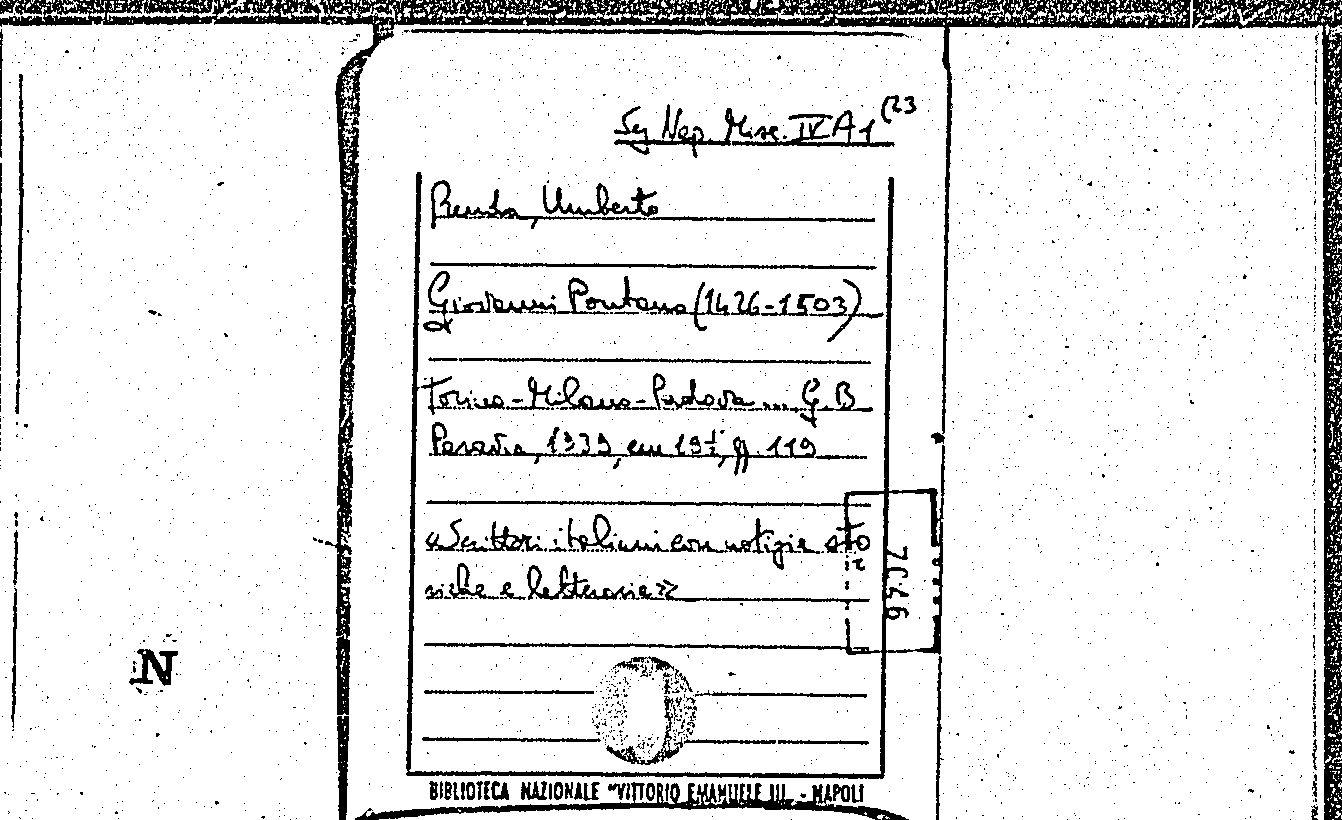 Sez Nap. Misc. IV A 1 (23
Renda, Umberto
Giovanni Pontano (1426-1503)
Torino-Milano-Padova ... G.B
Paravia, 1939, cm 19½, pp. 119
«Scrittori italiani con notizie sto
riche e letterarie»
7046
N
BIBLIOTECA NAZIONALE "VITTORIO EMANUELE III. - NAPOLI